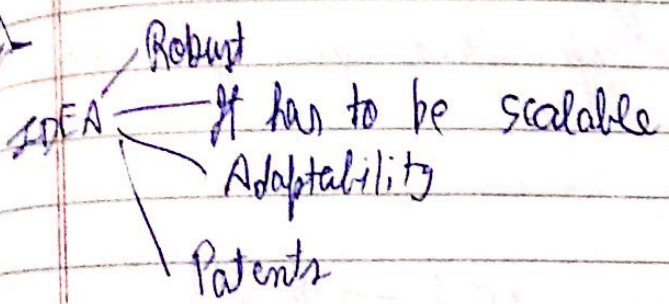 Robust
IDEA It has to be scalable
Adaptability
Patents